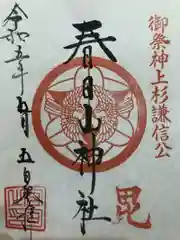 御祭神上杉謙信公
毘
春日山神社
令和五年五月五日